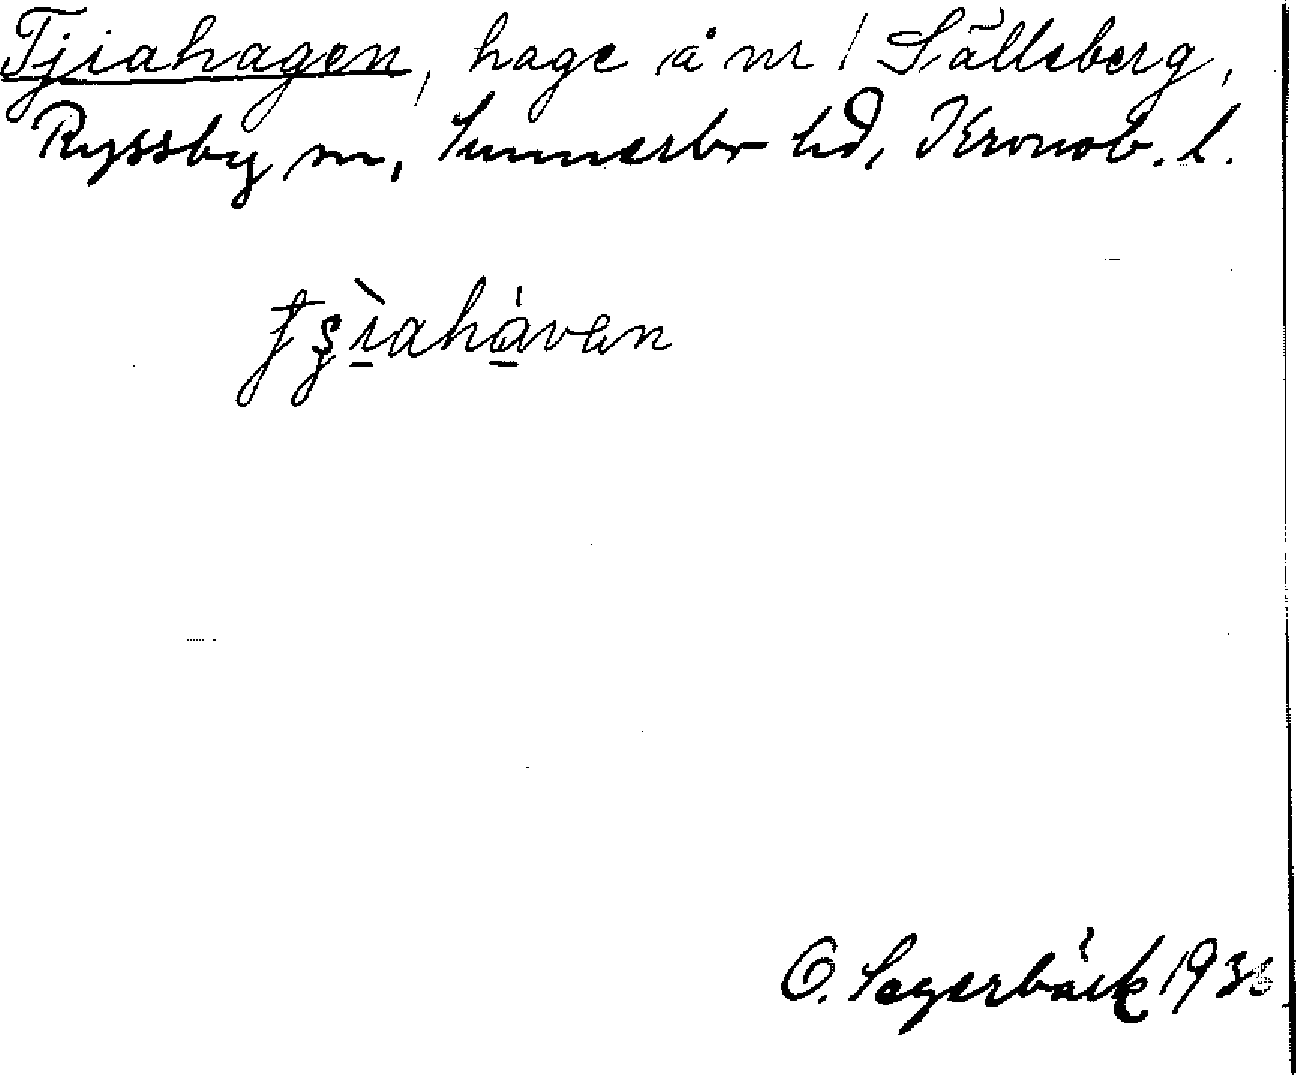 Tjiahagen, hage å nr 1 Sälleberg,
Ryssby sn, Sunnerbo hd, Kronob. l.
tʂìahávan
O. Segerbäck 1936